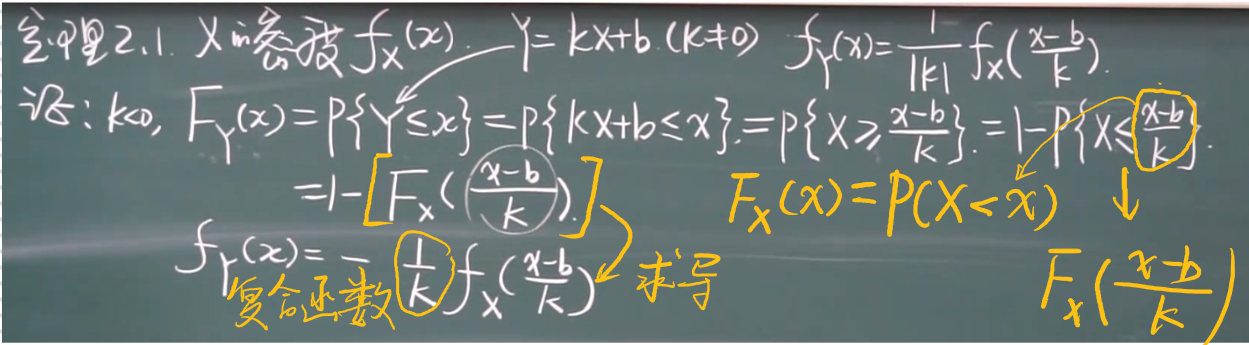 定理2.1. X的密度 f_X(x). Y=kX+b (k≠0) f_Y(x)=\frac{1}{|k|}f_X(\frac{x-b}{k}).
证: k<0, F_Y(x)=P{Y≤x}=P{kX+b≤x}.=P{X≥\frac{x-b}{k}}.=1-P{X≤\frac{x-b}{k}}.
=1-[F_X(\frac{x-b}{k}).] F_X(x)=P(X<x) ↓
f_Y(x)=-\frac{1}{k}f_X(\frac{x-b}{k}) 求导 F_X(\frac{x-b}{k})
复合函数